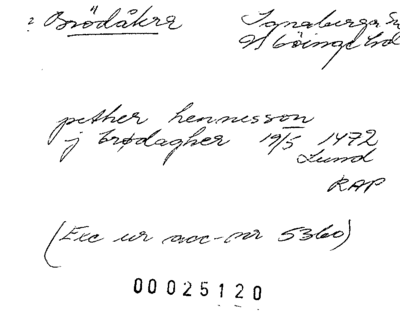 ? Brödåkra Tanaberga
V böinge hd
pether hennesson
j brødagher 19/5 1472
Lund
RAP
(Exc ur acc-nr 5360)
00025120